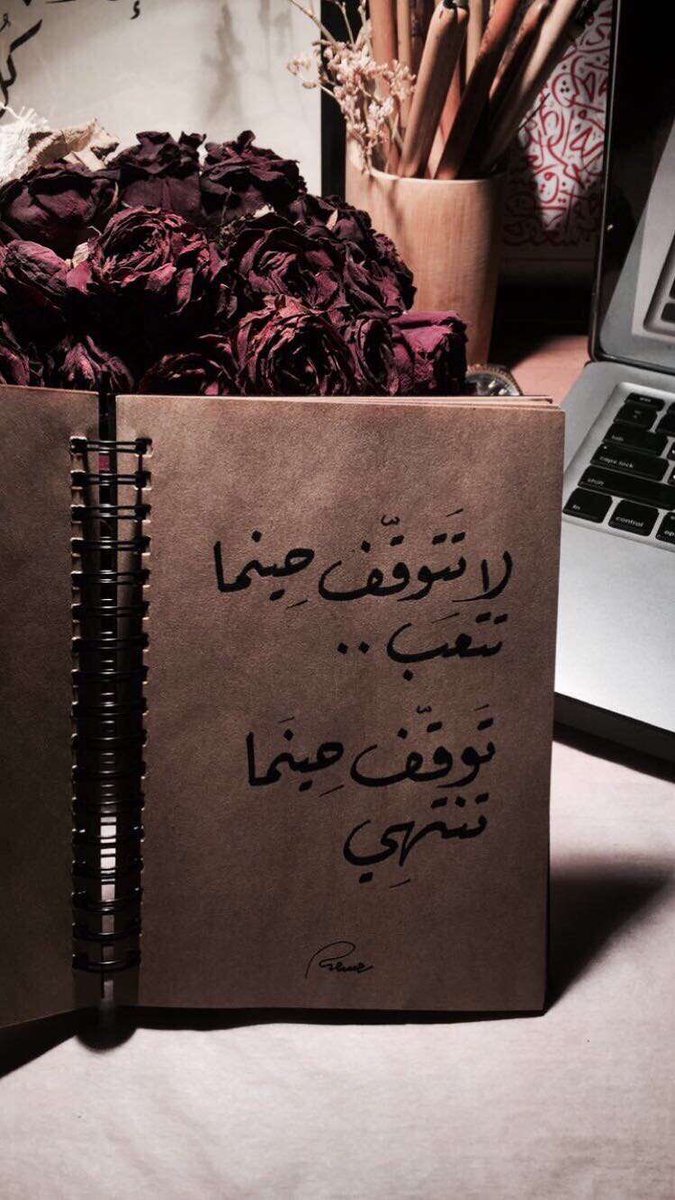 لا تَتَوقّف حِينما
تتعَب ..
تَوقّف حِينَما
تنتهِي
tab
caps lock
shift
fn
control
op